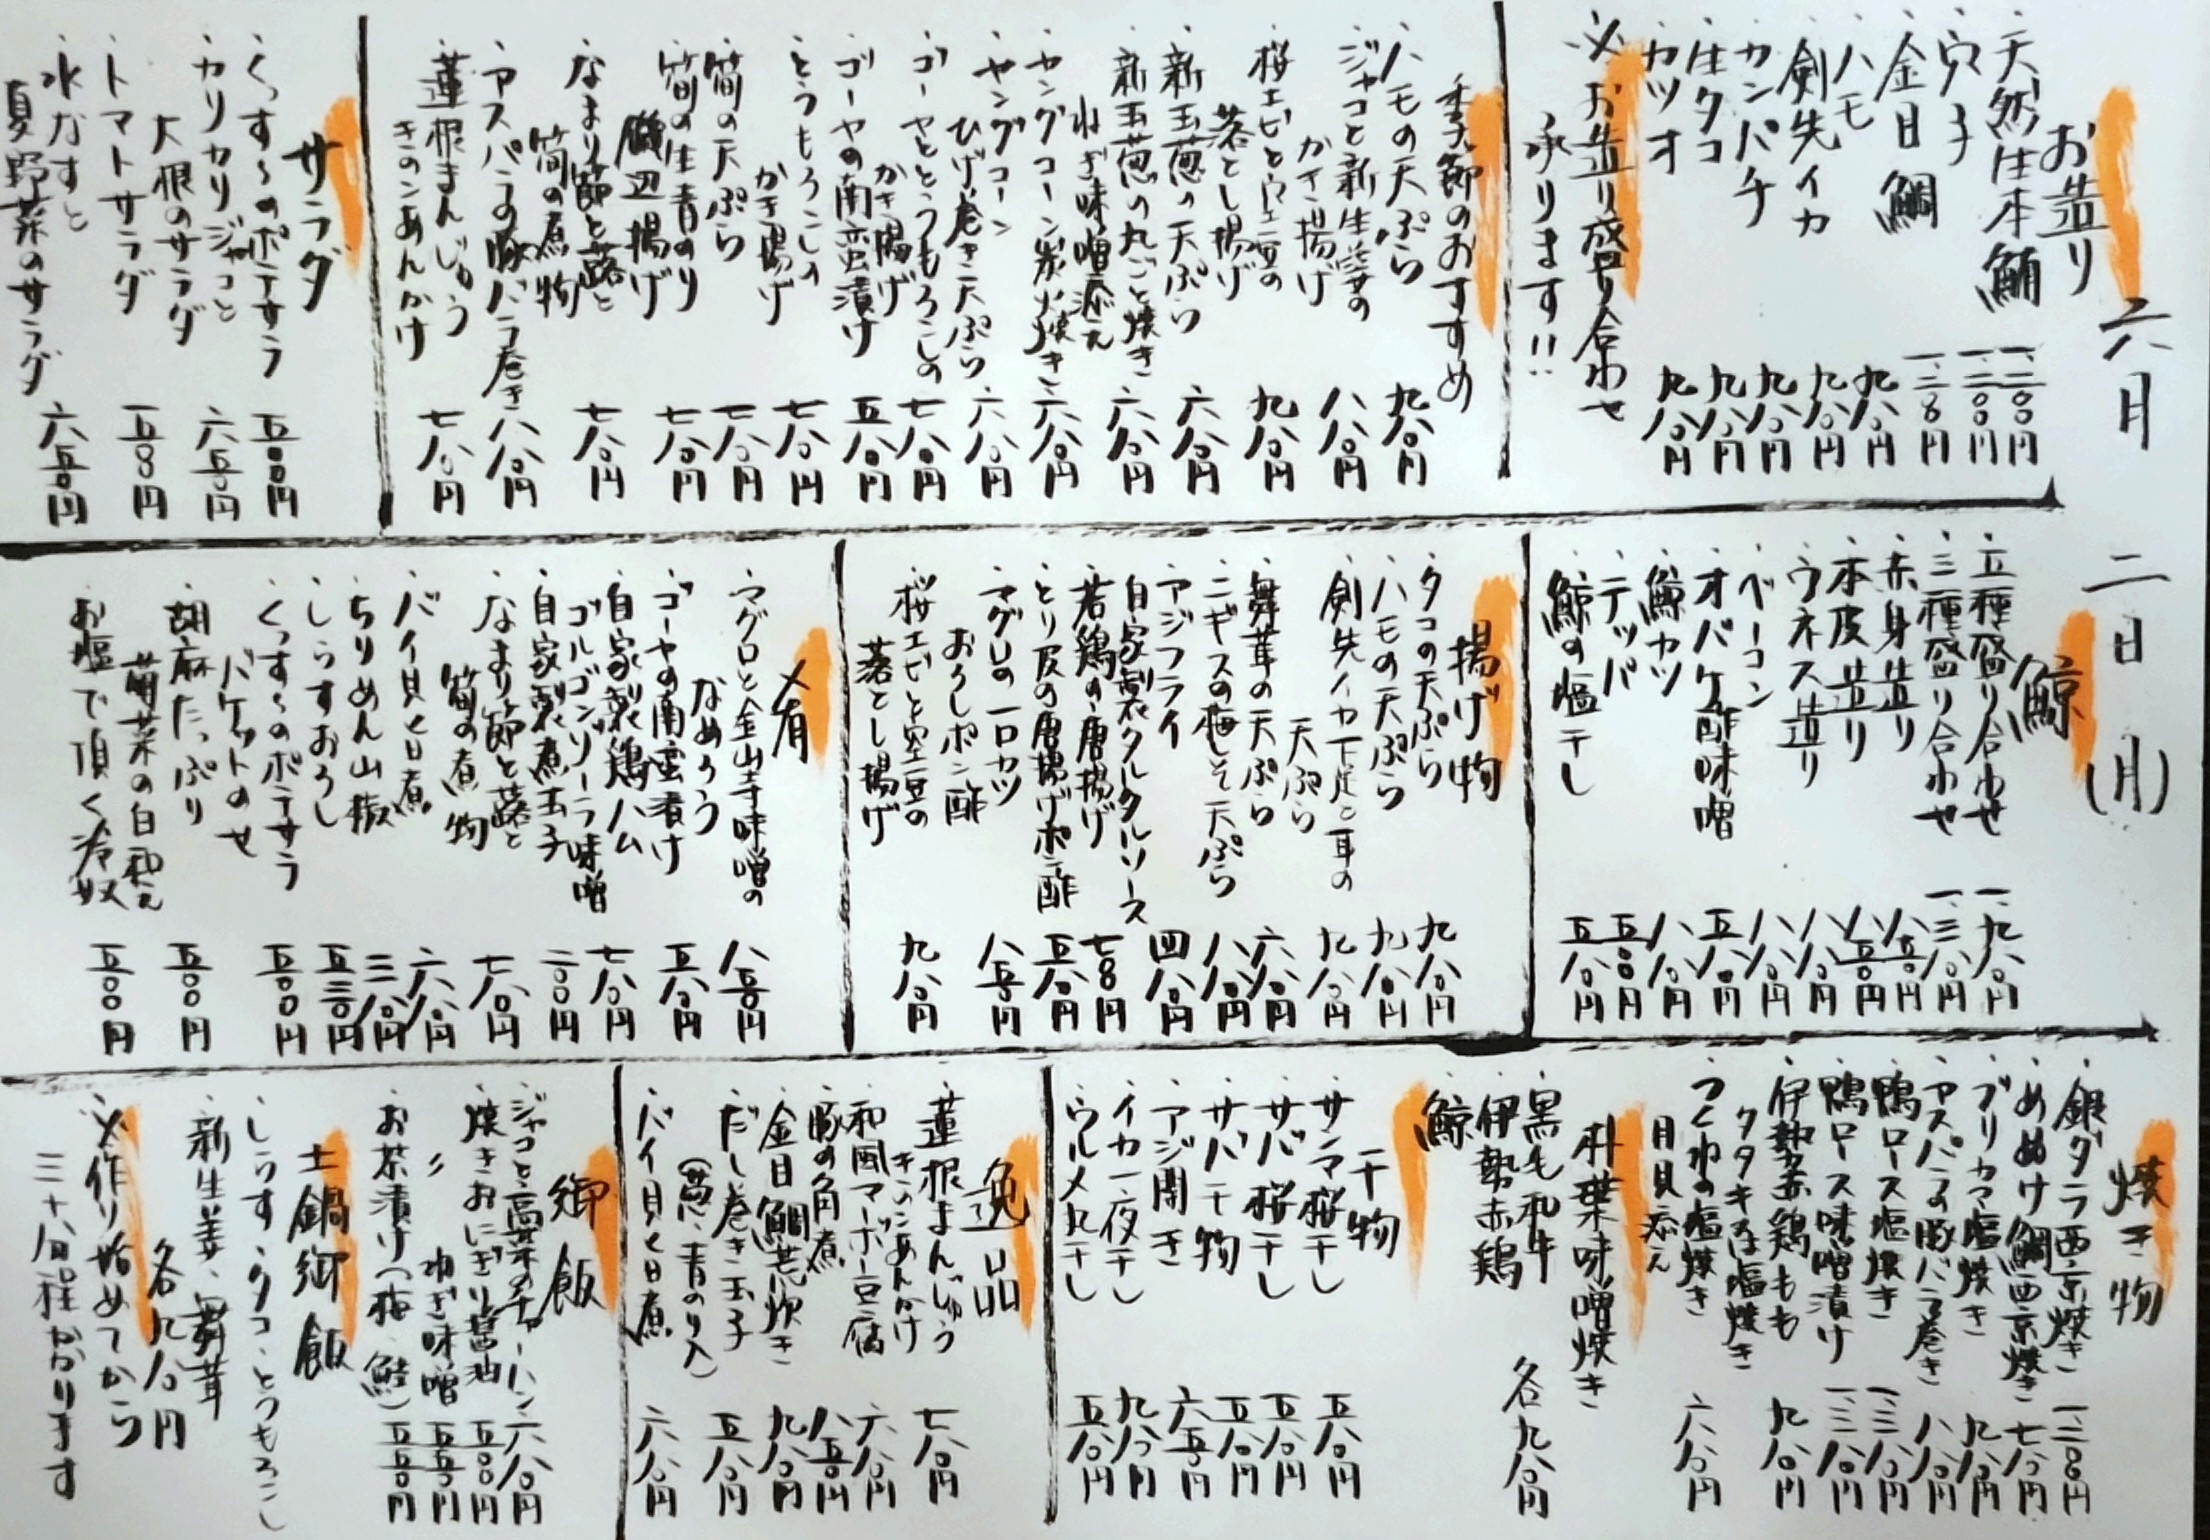 六月二日(月)
お造り
・天然生本鮪 一、二〇〇円
・穴子 一、二〇〇円
・金目鯛 一、二八〇円
・ハモ 九八〇円
・剣先イカ 九八〇円
・カンパチ 九八〇円
・生タコ 九八〇円
・カツオ 九八〇円
※お造り盛り合わせ
承ります!!
季節のおすすめ
・ハモの天ぷら 九八〇円
・ジャコと新生姜の
かき揚げ 八八〇円
・桜エビと空豆の
落とし揚げ 九八〇円
・新玉葱の天ぷら 六八〇円
・新玉葱の丸ごと焼き
ねぎ味噌添え 六八〇円
・ヤングコーン炭火焼き 六八〇円
・ヤングコーン
ひげ巻き天ぷら 六八〇円
・ゴーヤととうもろこしの
かき揚げ 七八〇円
・ゴーヤの南蛮漬け 五八〇円
・とうもろこしの
かき揚げ 七八〇円
・筍の天ぷら 七八〇円
・筍の生青のり
磯辺揚げ 七八〇円
・なまり節と蕗と
筍の煮物 七八〇円
・アスパラの豚バラ巻き 八八〇円
・蓮根まんじゅう
きのこあんかけ 七八〇円
サラダ
・くっす〜のポテサラ 五〇〇円
・カリカリジャコと
大根のサラダ 六五〇円
・トマトサラダ 五八〇円
・水なすと
夏野菜のサラダ 六五〇円
鯨
・五種盛り合わせ 一、九八〇円
・三種盛り合わせ 一、三八〇円
・赤身造り 八五〇円
・本皮造り 八五〇円
・ウネス造り 八八〇円
・ベーコン 八八〇円
・オバケ酢味噌 五八〇円
・鯨カツ 八八〇円
・テッパ 五〇〇円
・鯨の塩干し 五八〇円
揚げ物
・タコの天ぷら 九八〇円
・ハモの天ぷら 九八〇円
・剣先イカ下足と耳の
天ぷら 九八〇円
・舞茸の天ぷら 六八〇円
・ニギスの梅しそ天ぷら 八八〇円
・アジフライ
自家製タルタルソース 四八〇円
・若鶏の唐揚げ 七八〇円
・とり皮の唐揚げポン酢 五八〇円
・マグロの一口カツ
おろしポン酢 八五〇円
・桜エビと空豆の
落とし揚げ 九八〇円
〆肴
・マグロと金山寺味噌の
なめろう 八五〇円
・ゴーヤの南蛮漬け 五八〇円
・自家製鶏ハム
ゴルゴンゾーラ味噌 七八〇円
・自家製煮玉子 二〇〇円
・なまり節と蕗と
筍の煮物 七八〇円
・バイ貝と旨煮 六八〇円
・ちりめん山椒 三八〇円
・しらすおろし 五三〇円
・くっす〜のポテサラ
バケットのせ 五〇〇円
・胡麻たっぷり
菊菜の白和え 五〇〇円
・お塩で頂く冷奴 五〇〇円
焼き物
・銀ダラ西京焼き 一、二八〇円
・めぬけ鯛西京焼き 七八〇円
・ブリカマ塩焼き 九八〇円
・アスパラの豚バラ巻き 八八〇円
・鴨ロース塩焼き 一、三八〇円
・鴨ロース味噌漬け 一、三八〇円
・伊勢赤鶏もも
タタキ又は塩焼き 九八〇円
・つくねの塩焼き
月見添え 六八〇円
朴葉味噌焼き
黒毛和牛
伊勢赤鶏
鯨
各九八〇円
干物
・サンマ桜干し 五八〇円
・サバ桜干し 五八〇円
・サバ干物 五八〇円
・アジ開き 六五〇円
・イカ一夜干し 九八〇円
・ウルメ丸干し 五八〇円
逸品
・蓮根まんじゅう
きのこあんかけ 七八〇円
・和風マーボー豆腐 六八〇円
・豚の角煮 八五〇円
・金目鯛荒炊き 九八〇円
・だし巻き玉子
(葱、青のり入) 五八〇円
・バイ貝と旨煮 六八〇円
御飯
・ジャコと高菜のチャーハン 六八〇円
・焼きおにぎり醤油 五〇〇円
・〃 ねぎ味噌 五五〇円
・お茶漬け(梅、鮭) 五五〇円
土鍋御飯
・しらす・タコ・とうもろこし
・新生姜・舞茸
各九八〇円
※作り始めてから
三十八分程かかります